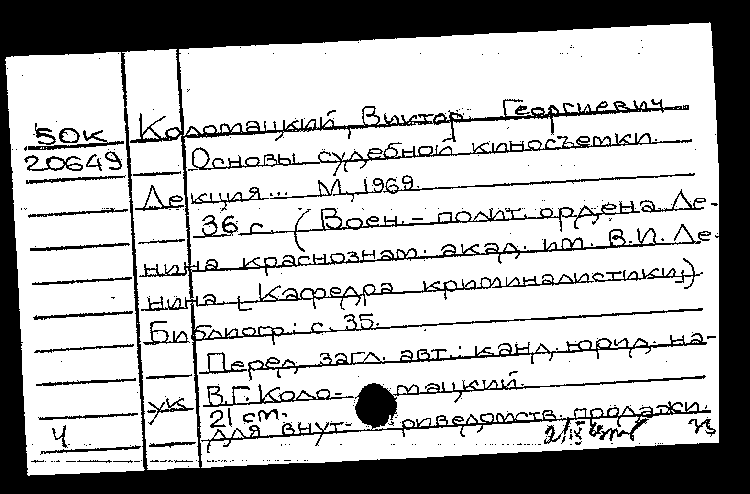 50к Коломацкий, Виктор Георгиевич
20649 Основы судебной киносъемки.
Лекция... М., 1969.
36 с. (Воен.-полит. ордена Ле-
нина краснознам. акад. им. В.И. Ле-
нина. Кафедра криминалистики)
Библиогр.: с. 35.
Перед загл. авт.: канд. юрид. на-
ук В.Г. Коло- мацкий.
21 см.
Ч Для внут- риведомств. продажи.